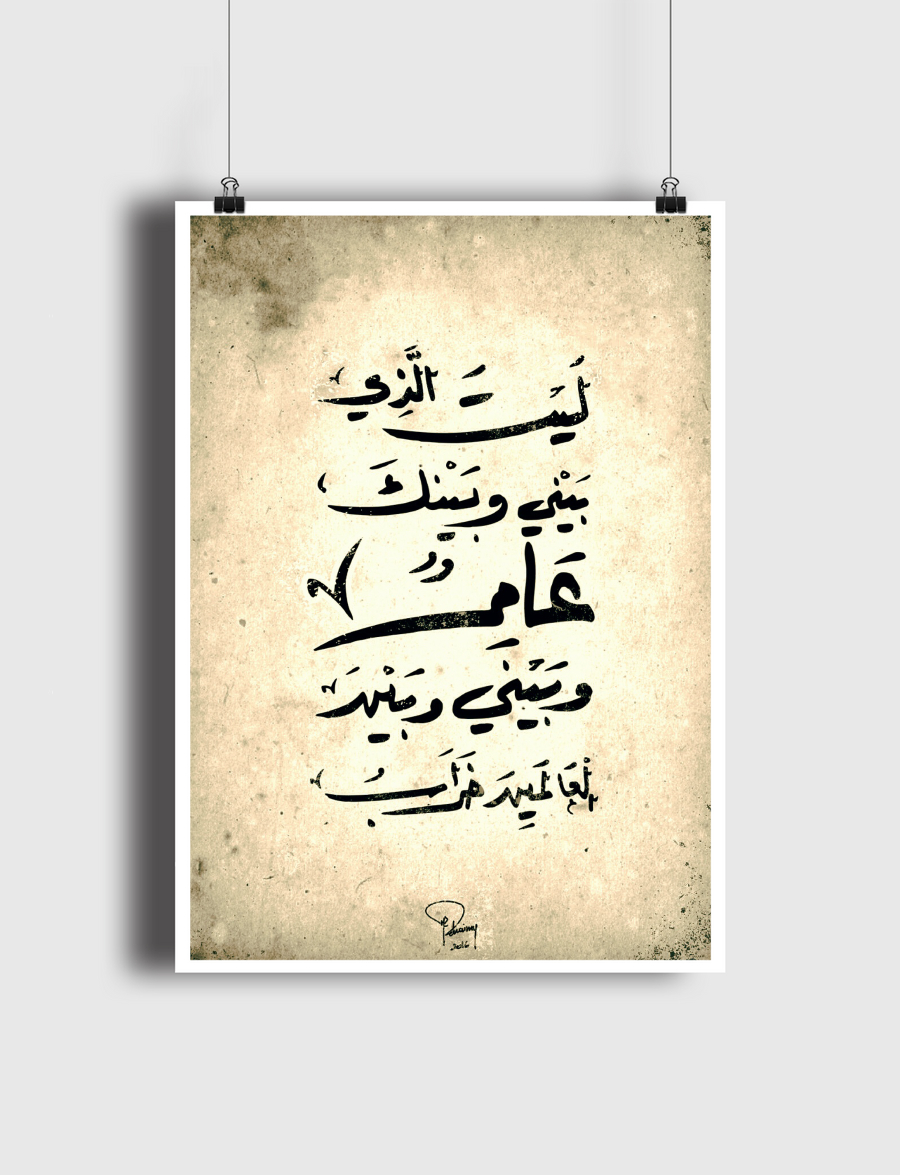 لَيْتَ الَّذِي
بَيْنِي وبَيْنكَ
عَامِرٌ
وبَيْنِي وبَيْنَ
الْعَالَمِينَ خَرَابُ
2016